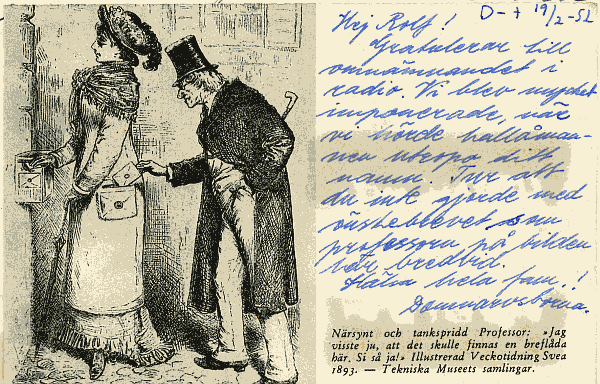 D-+ 19/2-52
Hej Rolf!
Gratulerar till
omnämnandet i
radio. Vi blev mycket
imponerade, när
vi hörde hallåman-
nen utropa ditt
namn. Tur att
du inte gjorde med
önskebrevet som
professorn på bilden
här bredvid.
Hälsa hela fam.!
Dammarosborna.
Närsynt och tankspridd Professor: »Jag
visste ju, att det skulle finnas en breflåda
här. Si så ja!» Illustrerad Veckotidning Svea
1893. — Tekniska Museets samlingar.